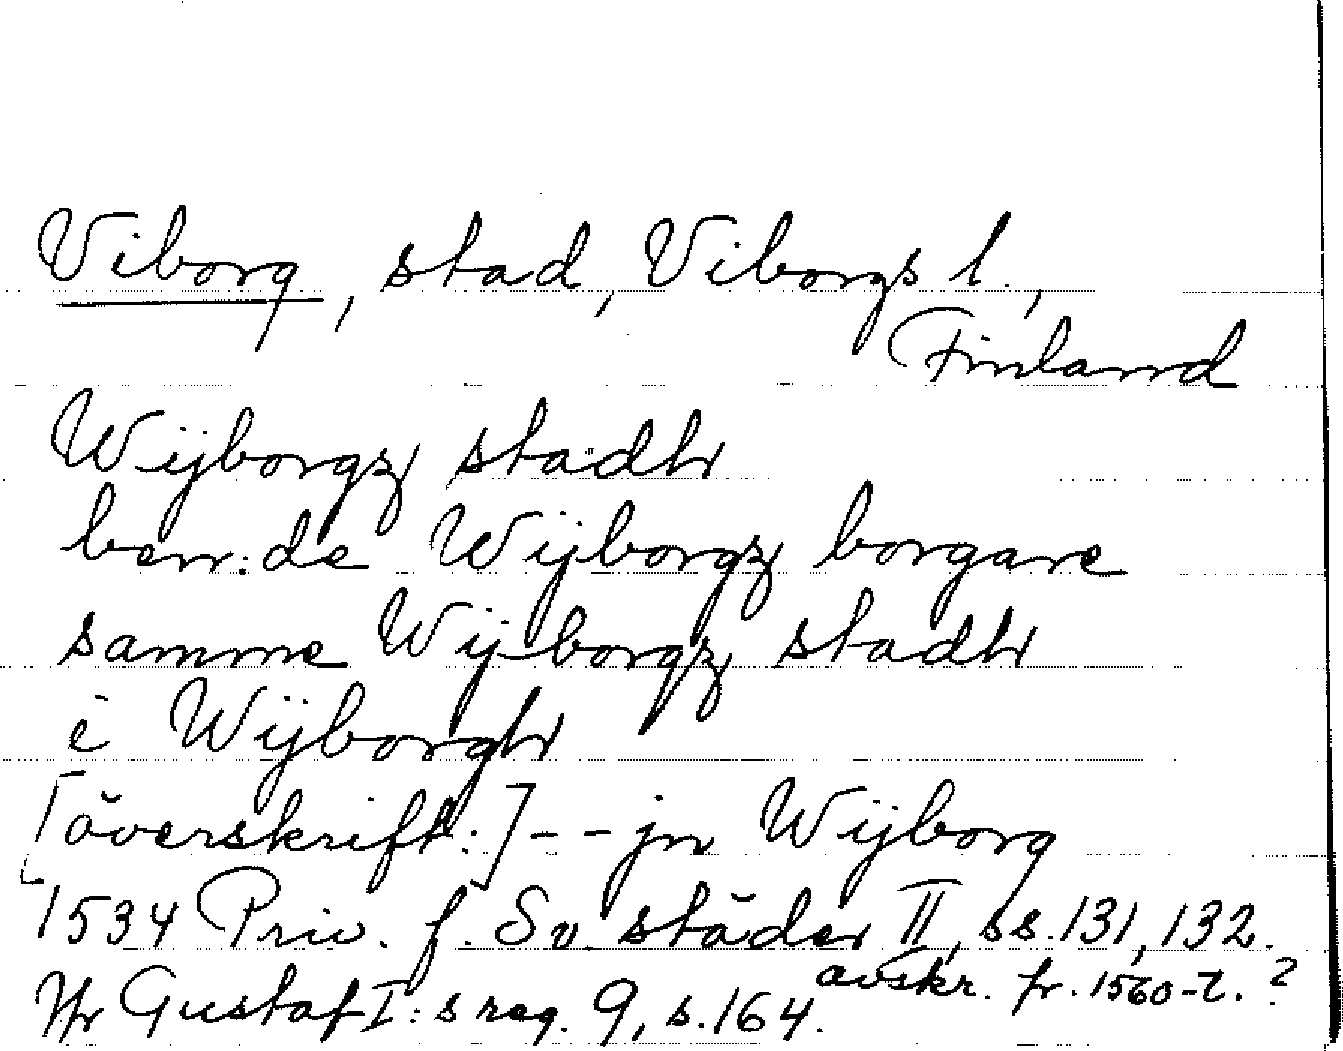 Viborg, stad, Viborgs l.,
Finland
Wijborgz stadh
ben:de Wijborgz borgare
samme Wijborgz stadh
i Wijborgh
[överskrift:] - - jn Wijborg
1534 Priv. f. Sv. städer II, ss. 131, 132.
avskr. fr. 1560-t.?
Jfr Gustaf I:s reg. 9, s. 164.